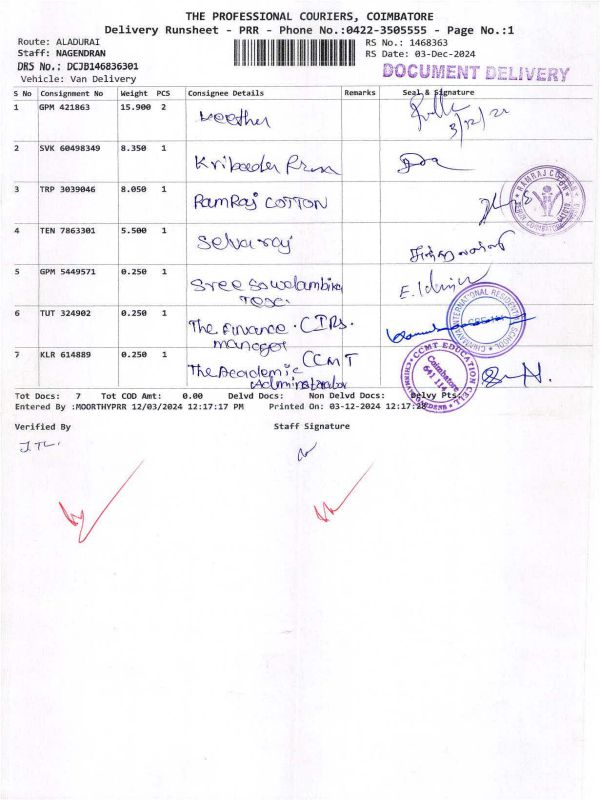 THE PROFESSIONAL COURIERS, COIMBATORE
Delivery Runsheet - PRR - Phone No.:0422-3505555 - Page No.:1
Route: ALADURAI RS No.: 1468363
Staff: NAGENDRAN RS Date: 03-Dec-2024
DRS No.: DCJB146836301
DOCUMENT DELIVERY
Vehicle: Van Delivery
S No Consignment No Weight PCS Consignee Details Remarks Seal & Signature
1 GPM 421863 15.900 2
3/12/24
2 SVK 60498349 8.350 1
3 TRP 3039046 8.050 1 RamRaj COTTON
RAMRAJ COTTON
4 TEN 7863301 5.500 1 Selvaraj
5 GPM 5449571 0.250 1 Sree
6 TUT 324902 0.250 1 The Finance. CIRS.
manager
INTERNATIONAL RESIDENTIAL SCHOOL
7 KLR 614889 0.250 1 The Academic CCMT
Administrator
CCMT EDUCATION CELL
Coimbatore
641 114
Tot Docs: 7 Tot COD Amt: 0.00 Delvd Docs: Non Delvd Docs: Delvy Pts:
Entered By :MOORTHYPRR 12/03/2024 12:17:17 PM Printed On: 03-12-2024 12:17:28
Verified By Staff Signature